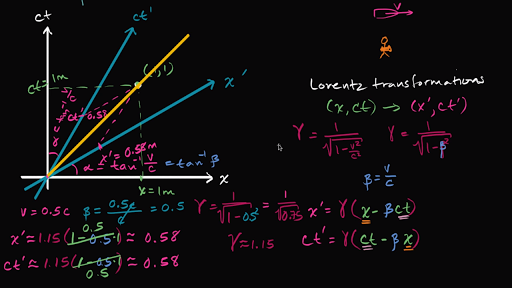 ct
ct'
v
(1,1)
x'
ct = 1m
ct' = 0.58
x' = 0.58m
α = tan⁻¹ v/c = tan⁻¹ β
x
x = 1m
Lorentz transformations
(x, ct) → (x', ct')
γ = 1/√(1-v²/c²)
γ = 1/√(1-β²)
β = v/c
v = 0.5c
β = 0.5c/c = 0.5
γ = 1/√(1-0.5²) = 1/√0.75
γ ≈ 1.15
x' = γ(x - βct)
ct' = γ(ct - βx)
x' ≈ 1.15(1-0.5·1) ≈ 0.58
0.5
ct' ≈ 1.15(1-0.5·1) ≈ 0.58
0.5